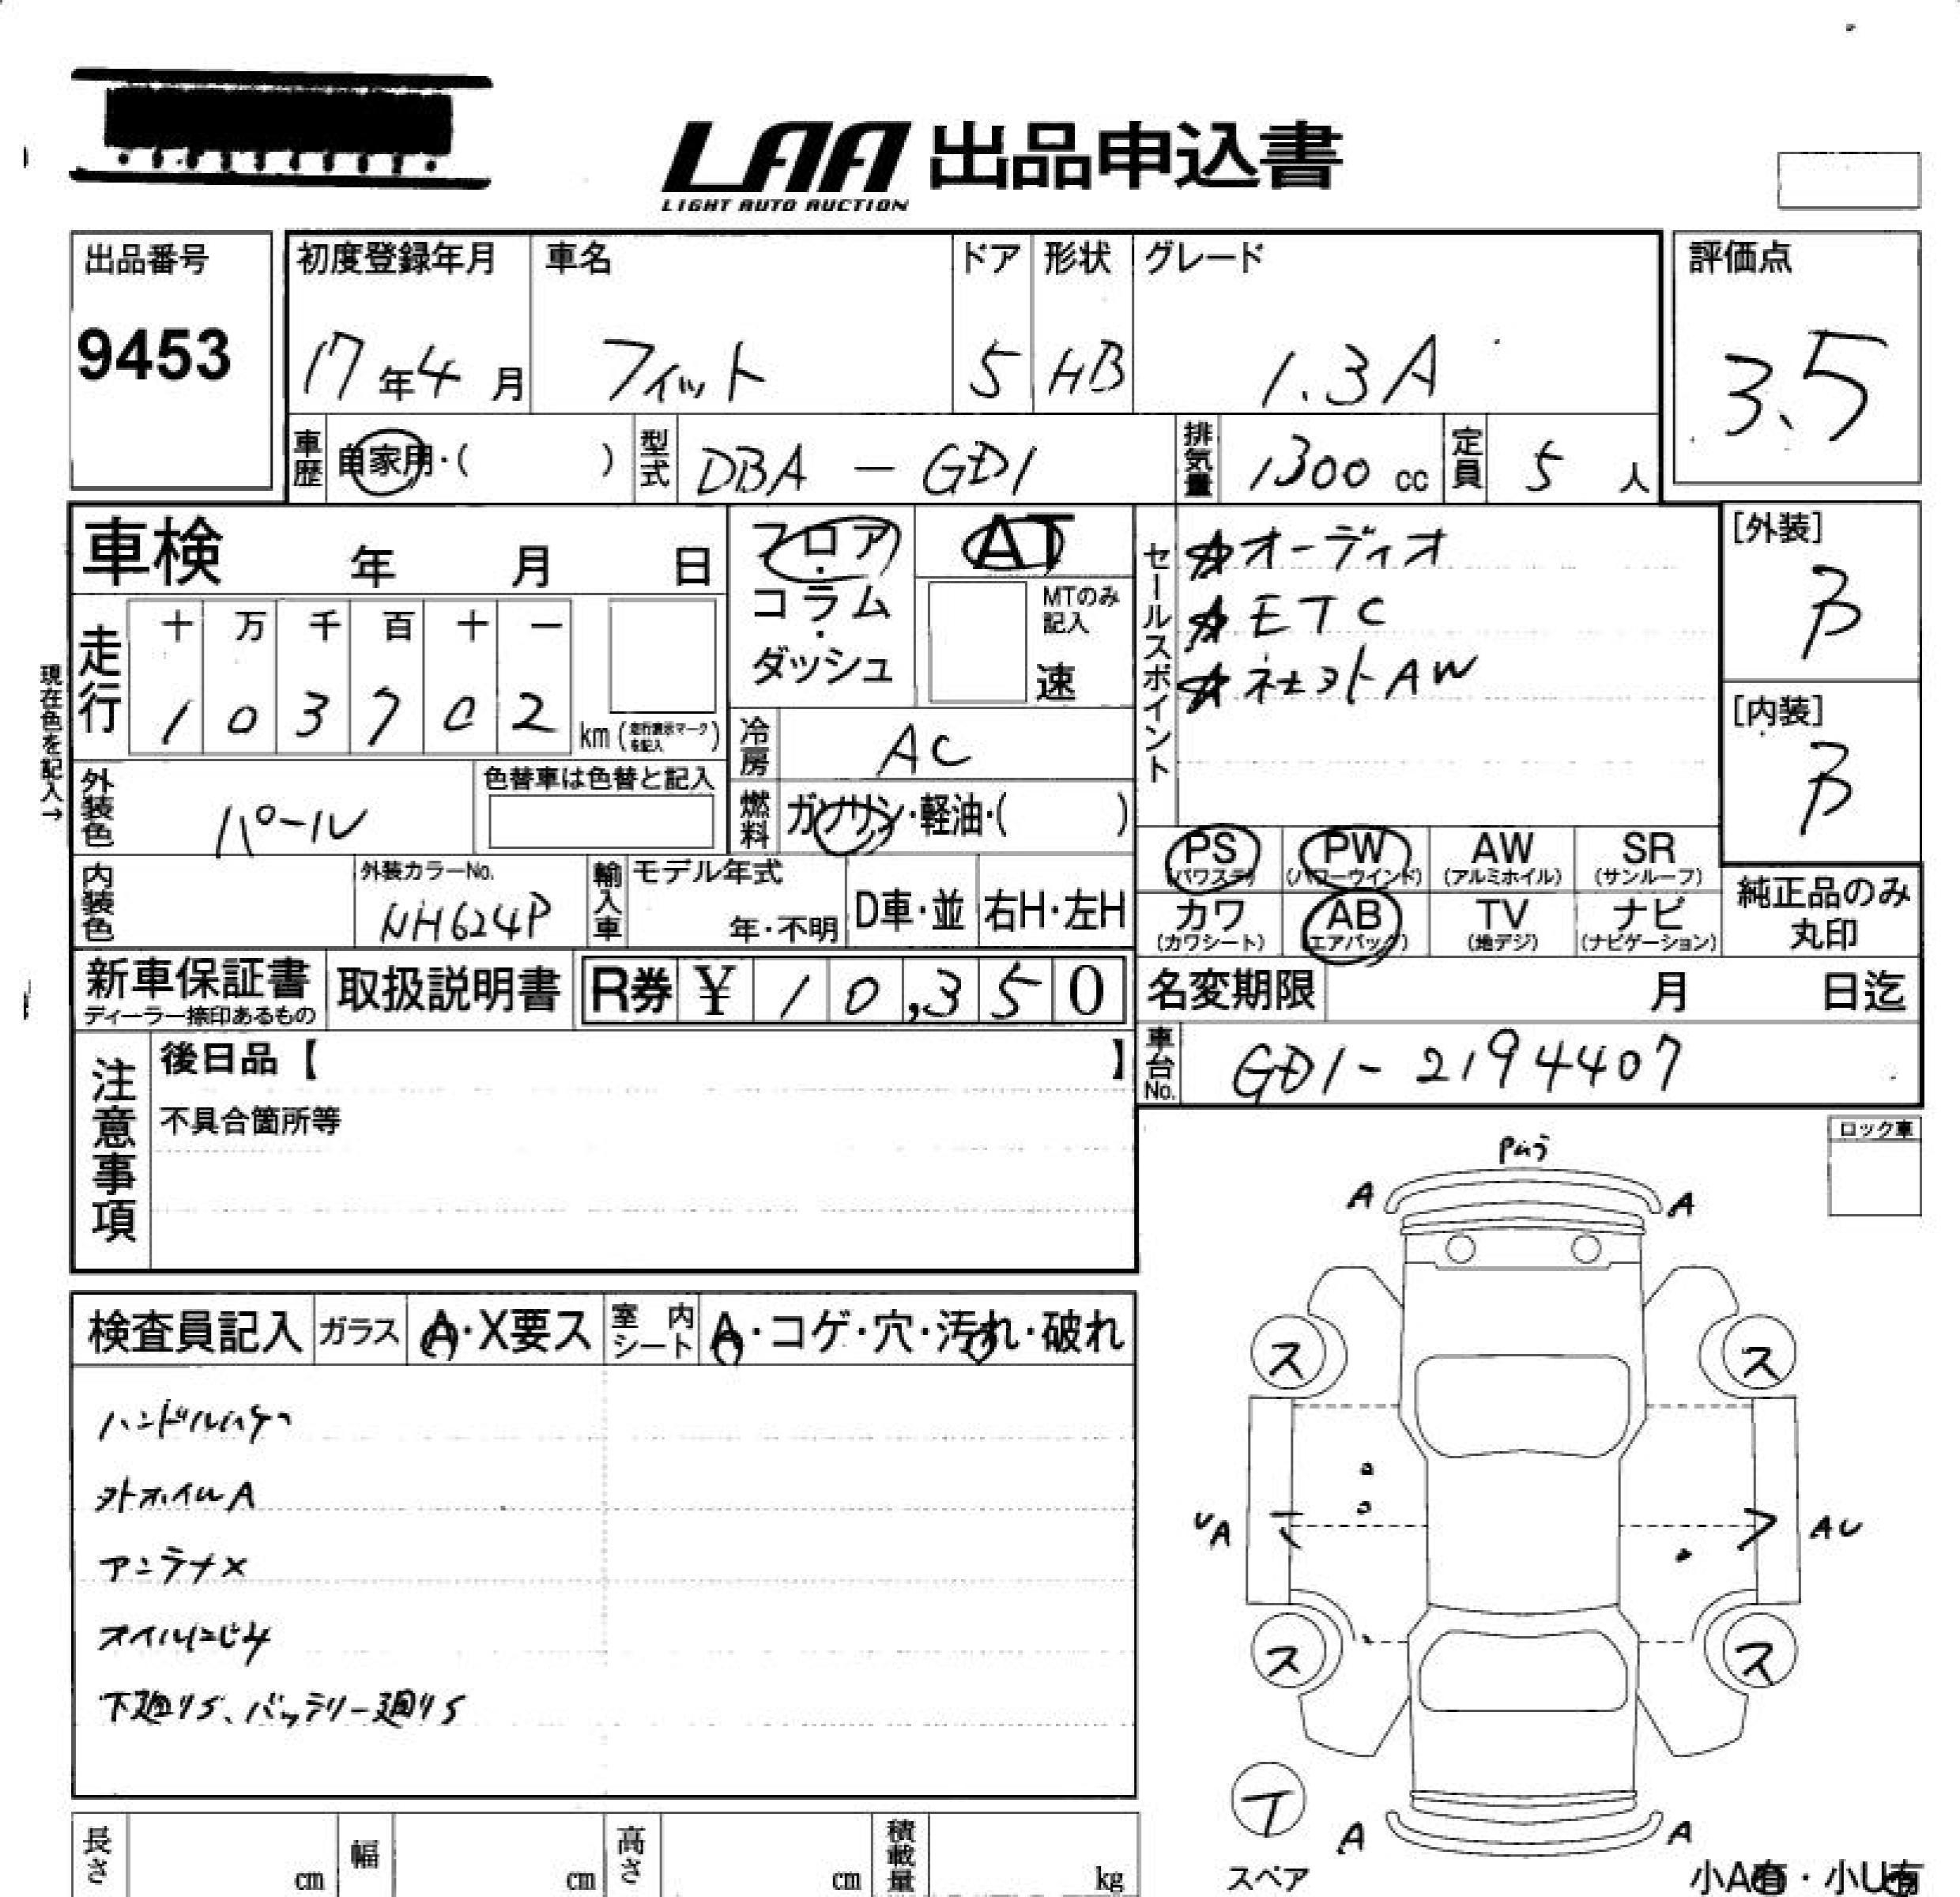 LAA 出品申込書
LIGHT AUTO AUCTION
出品番号
9453
初度登録年月
17年4月
車名
フィット
ドア
5
形状
HB
グレード
1.3A
評価点
3.5
車歴
自家用・( )
型式
DBA - GD1
排気量
1300 cc
定員
5 人
車検 年 月 日
フロア・コラム・ダッシュ
AT
MTのみ記入
速
セールスポイント
☆オーディオ
☆ETC
☆社外AW
[外装]
B
[内装]
B
現在色を記入→
走行
十 万 千 百 十 一
1 0 3 7 0 2
km(走行表示マークを記入)
冷房
AC
外装色
パール
色替車は色替と記入
燃料
ガソリン・軽油・( )
PS
(パワステ)
PW
(パワーウインド)
AW
(アルミホイル)
SR
(サンルーフ)
カワ
(カワシート)
AB
(エアバック)
TV
(地デジ)
ナビ
(ナビゲーション)
純正品のみ
丸印
内装色
外装カラーNo.
NH624P
輸入車
モデル年式
年・不明
D車・並
右H・左H
新車保証書
ディーラー捺印あるもの
取扱説明書
R券 ¥ 10,350
名変期限 月 日迄
車台No.
GD1-2194407
注意事項
後日品【 】
不具合箇所等
ロック車
検査員記入
ガラス
A・X要ス
室内シート
A・コゲ・穴・汚れ・破れ
ハンドルハゲ
外ホイルA
アンテナX
オイルにじみ
下廻りS、バッテリー廻りS
A
A
ス
ス
UA
AU
ス
ス
T
スペア
A
A
小A有・小U有
長さ cm
幅 cm
高さ cm
積載量 kg